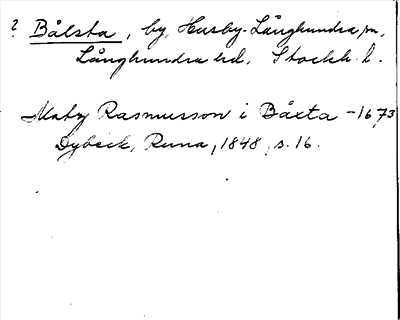 ? Bålsta, by, Husby-Långhundra sn,
Långhundra hd, Stockh. l.
Matz Rasmusson i Båxta -1673
Dybeck, Runa, 1848, s. 16.